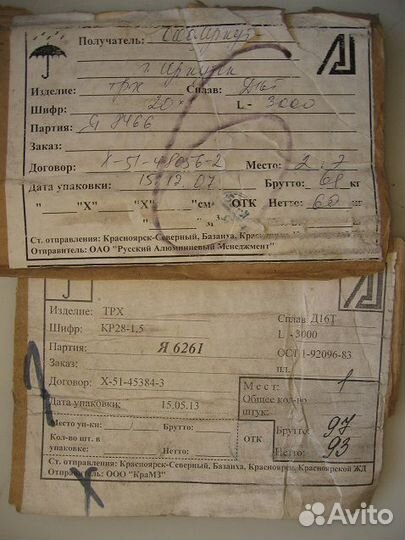 Получатель:
г. Иркутск
Изделие: трх Сплав: Д16Т
Шифр: L - 3000
Партия: Я 8466
Заказ:
Договор: Х-51-48656-2 Место:
Дата упаковки: 15.12.07 Брутто: кг
" "Х" "Х" "см ОТК Нетто: кг
" "м³
Ст. отправления: Красноярск-Северный, Базаиха,
Отправитель: ОАО "Русский Алюминиевый Менеджмент"
Изделие: ТРХ Сплав: Д16Т
Шифр: КР28-1,5 L -3000
Партия: Я 6261 1-92096-83
Заказ: пл.
Договор: Х-51-45384-3 Мест: 1
Дата упаковки 15.05.13 Общее кол-во штук:
Место уп-ки: Брутто: Брутто: 97
Кол-во шт. в упаковке: Нетто: ОТК Нетто: 93
Ст. отправления: Красноярск-Северный, Базаиха, Красноярск, Красноярской ЖД
Отправитель: ООО "КраМЗ"
Avito